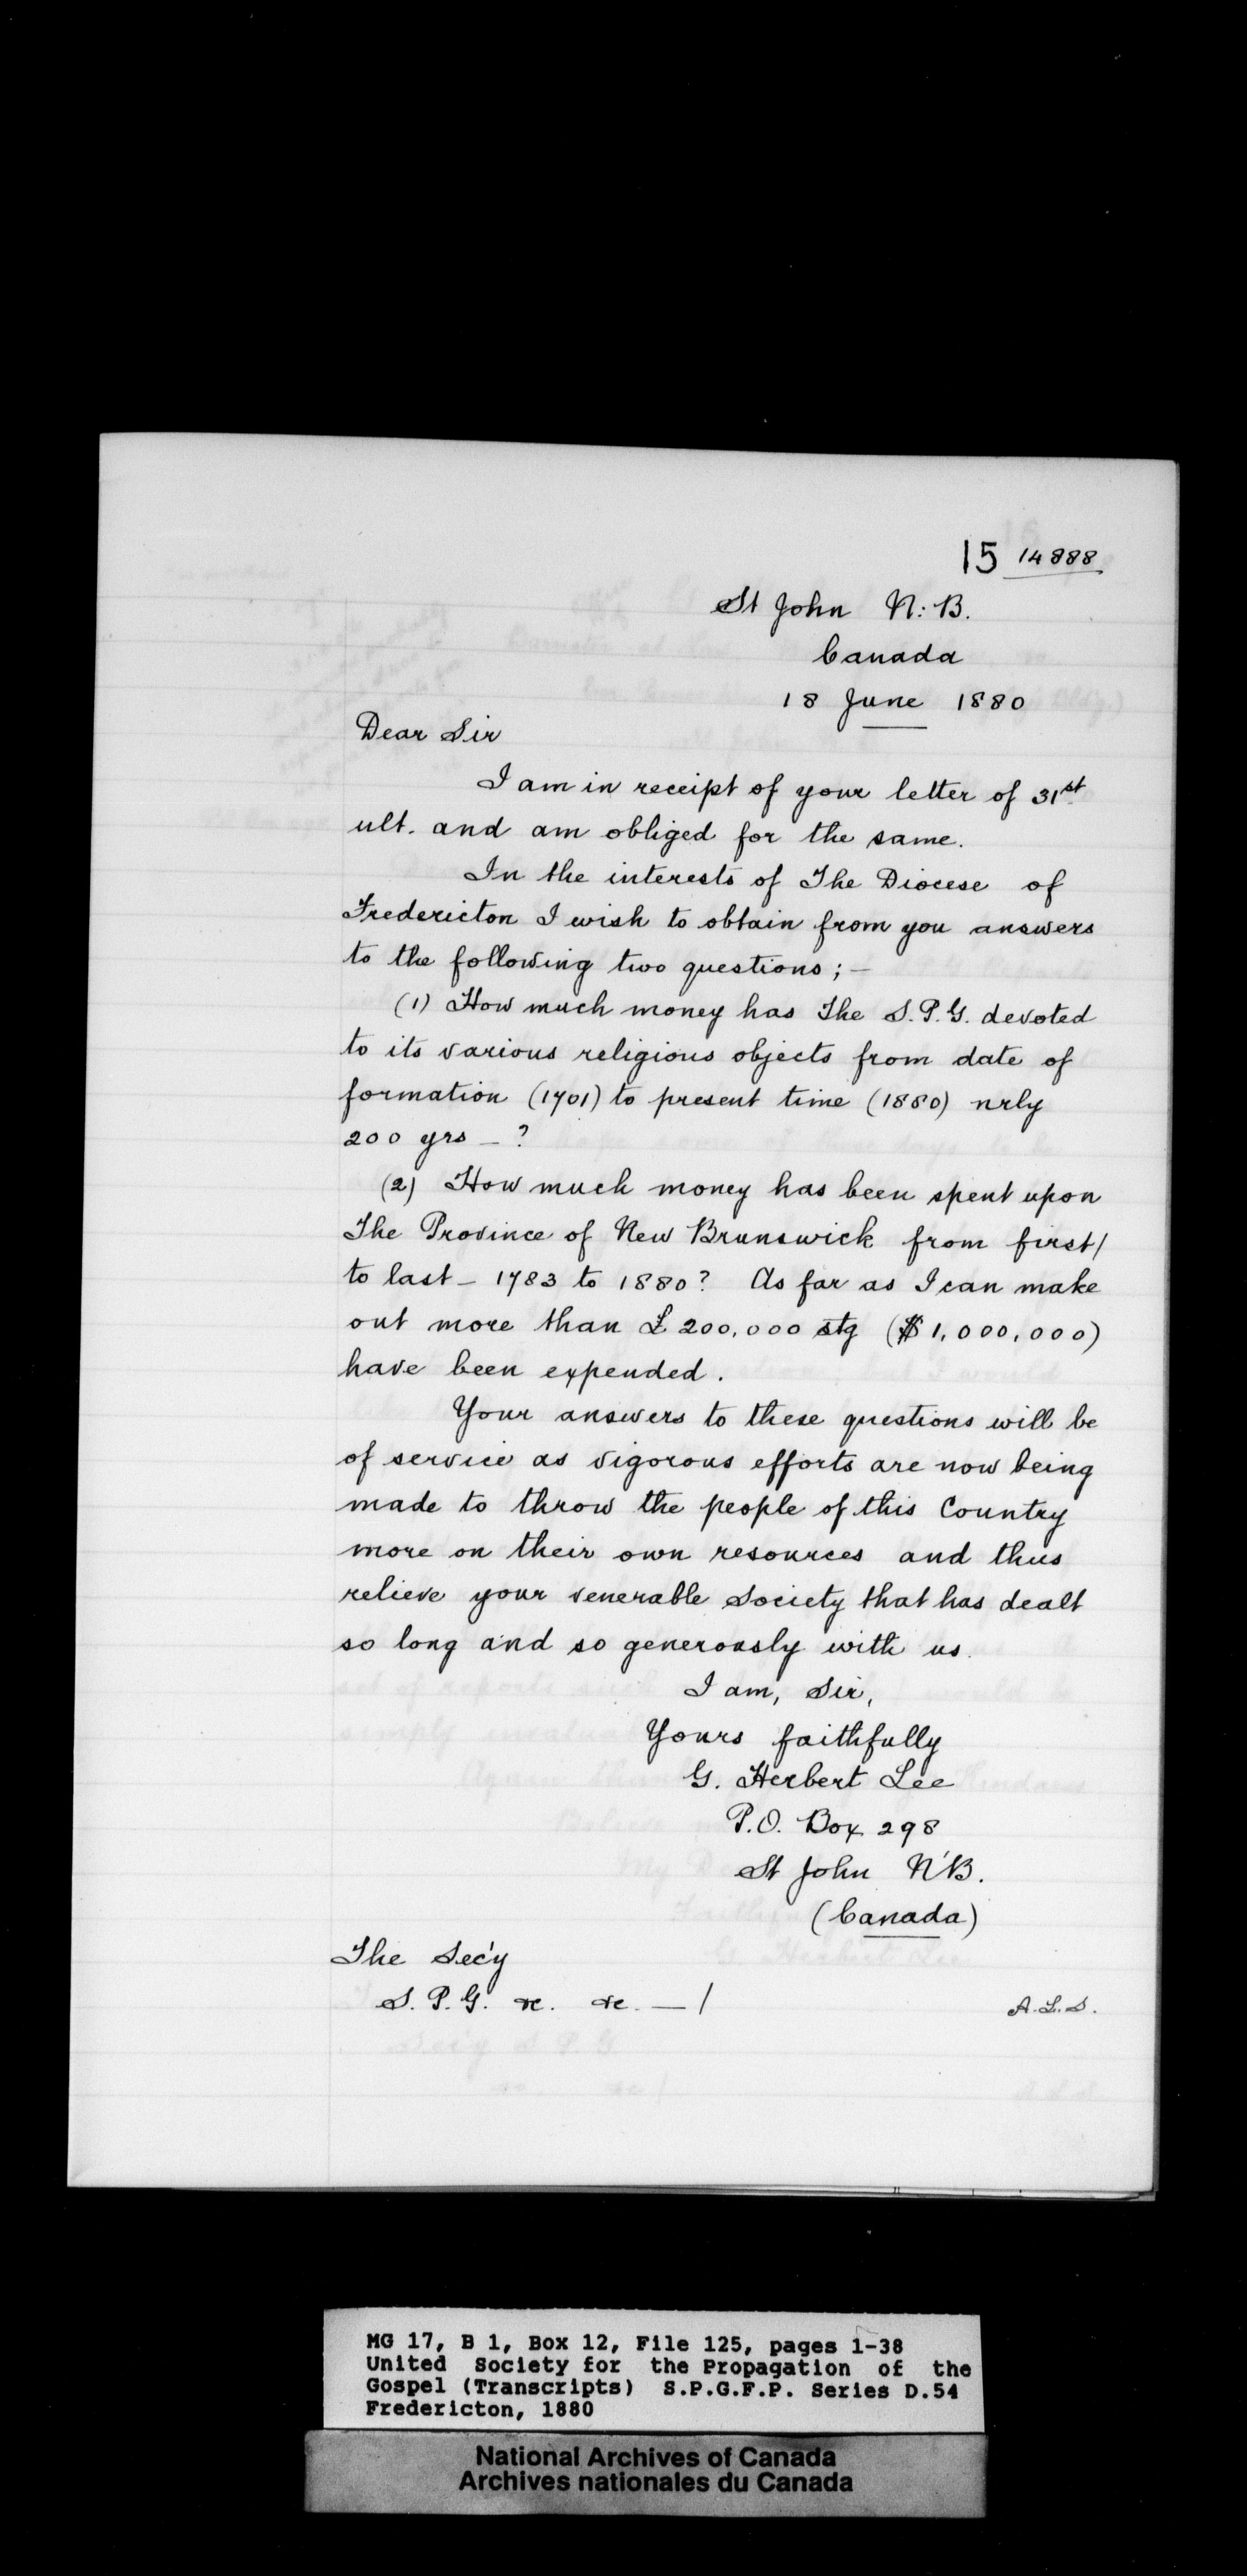 15 14888
St John N: B.
Canada
18 June 1880
Dear Sir
I am in receipt of your letter of 31st
ult. and am obliged for the same.
In the interests of The Diocese of
Fredericton I wish to obtain from you answers
to the following two questions; —
(1) How much money has The S.P.G. devoted
to its various religious objects from date of
formation (1701) to present time (1880) nrly
200 yrs — ?
(2) How much money has been spent upon
The Province of New Brunswick from first/
to last — 1783 to 1880? As far as I can make
out more than £200,000 stg ($1,000,000)
have been expended.
Your answers to these questions will be
of service as vigorous efforts are now being
made to throw the people of this Country
more on their own resources and thus
relieve your venerable Society that has dealt
so long and so generously with us.
I am, Sir,
Yours faithfully
G. Herbert Lee
P.O. Box 298
St John N'B.
(Canada)
The Sec'y
S. P. G. &c. &c. — /
A.L.S.
MG 17, B 1, Box 12, File 125, pages 1-38
United Society for the Propagation of the
Gospel (Transcripts) S.P.G.F.P. Series D.54
Fredericton, 1880
National Archives of Canada
Archives nationales du Canada